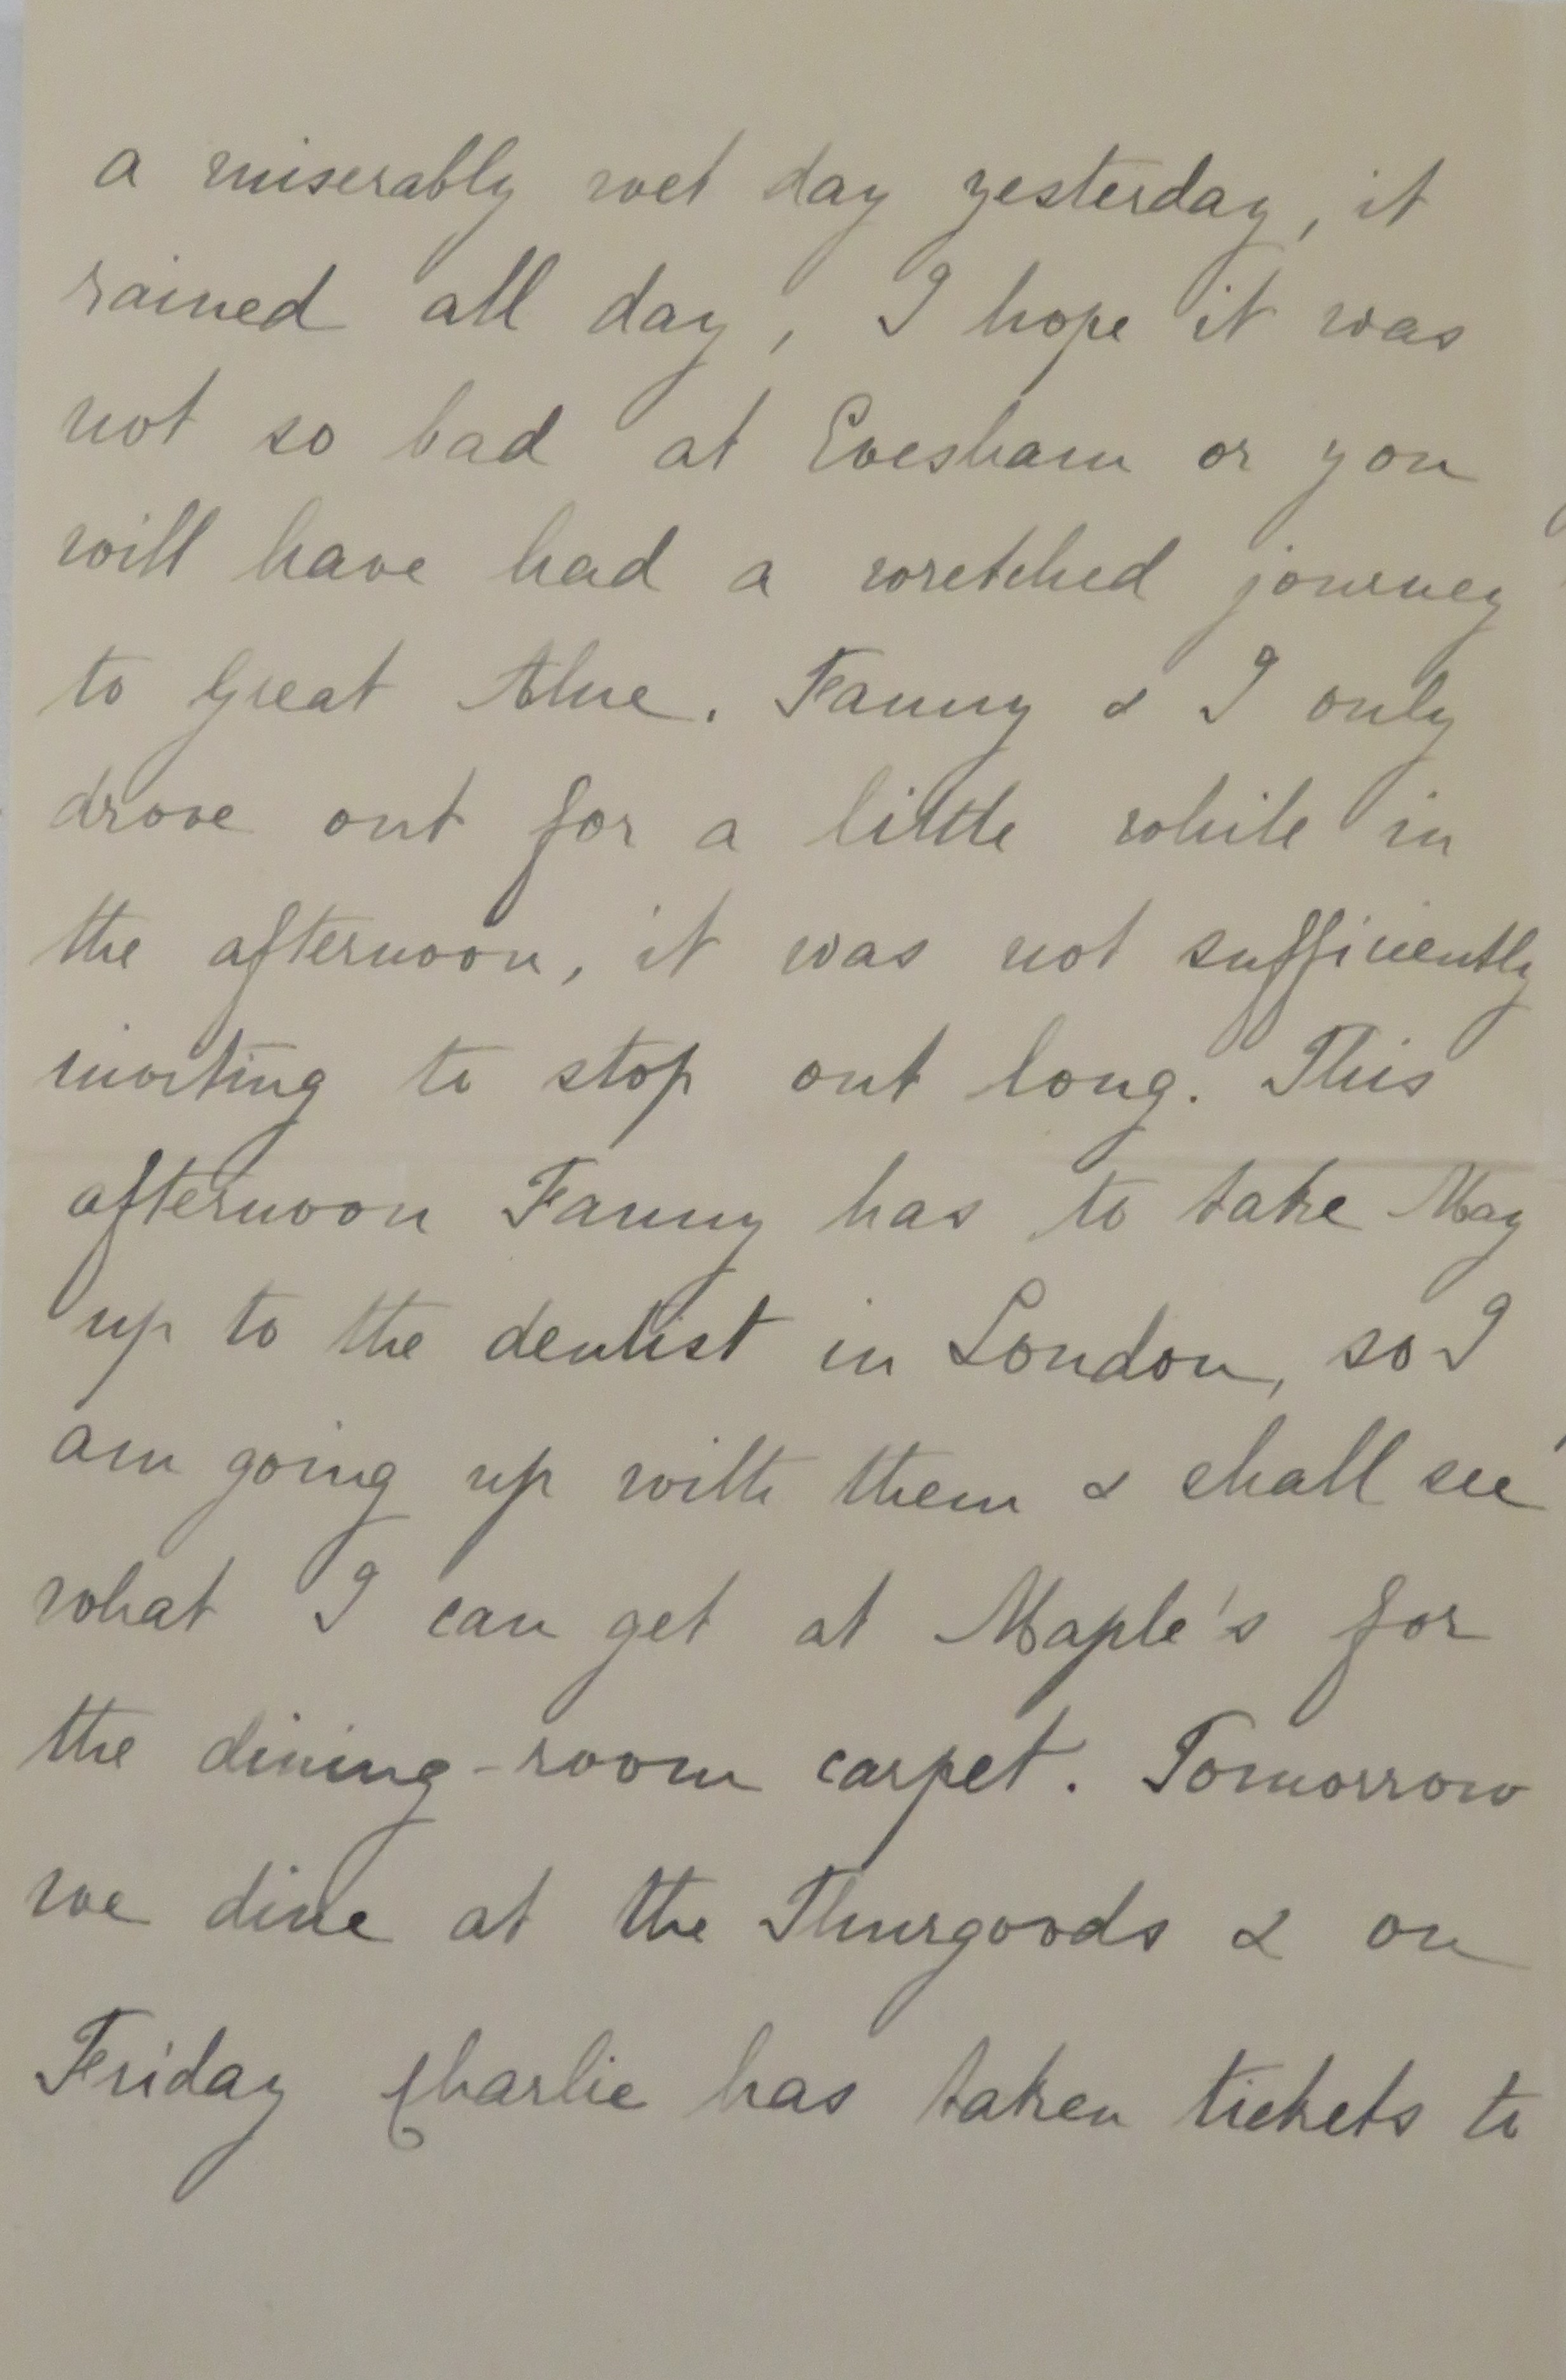 a miserably wet day yesterday, it
rained all day, I hope it was
not so bad at Evesham or you
will have had a wretched journey
to Great Alne. Fanny & I only
drove out for a little while in
the afternoon, it was not sufficiently
inviting to stop out long. This
afternoon Fanny has to take May
up to the dentist in London, so I
am going up with them & shall see
what I can get at Maple's for
the dining-room carpet. Tomorrow
we dine at the Thurgoods & on
Friday Charlie has taken tickets to